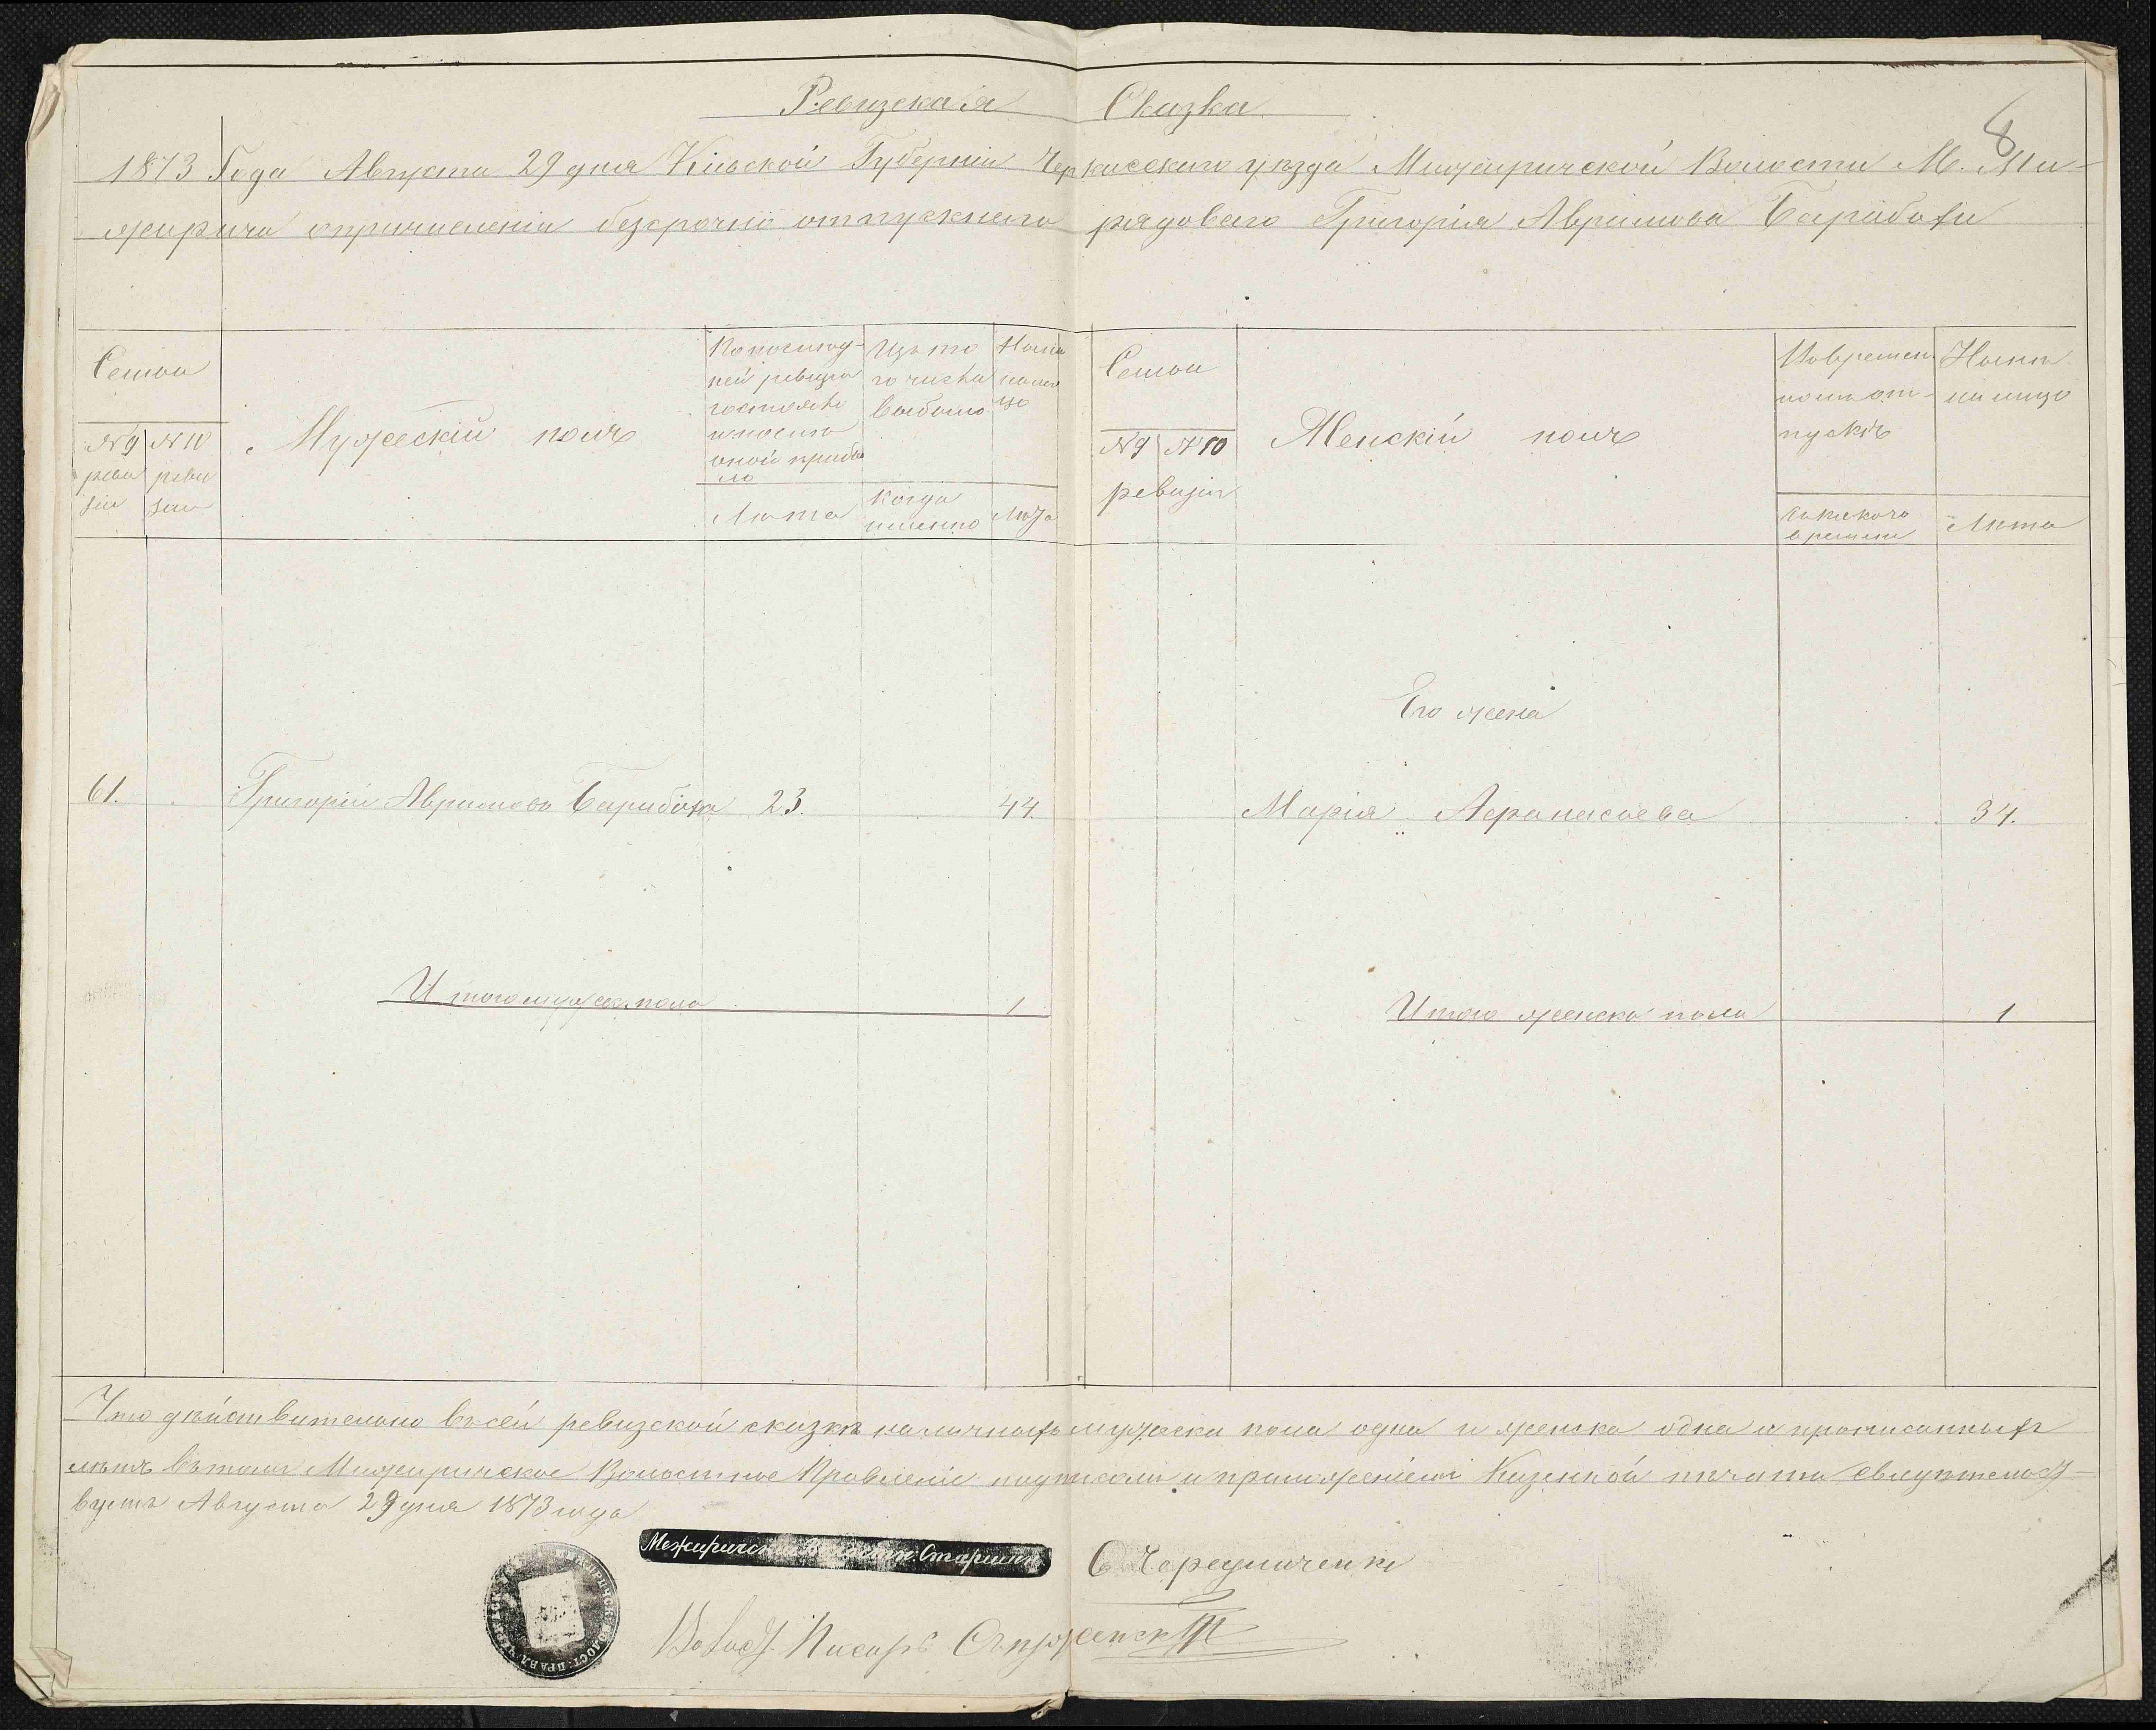 Ревизская Сказка
8
1873 Года Августа 29 дня Кіевской Губерніи Черкасскаго уѣзда Межиричской Волости М. Ме-
жирича опричисленіи безсрочно отпускнаго рядоваго Григорія Аврамова Барабаха
Семьи
№ 9 ревизіи
№ 10 ревизіи
Мужескій полъ
По послѣд-
ней ревизіи
состояло
и послѣ
оной прибы
ло
Лѣта
Изъ то
го числа
выбыло
Когда
именно
Нынѣ
на ли
цо
Лѣта
Семьи
№ 9 № 10
ревизіи
Женскій полъ
Вовремен
ной от-
лучкѣ
Съ какого
времени
Нынѣ
на лицо
Лѣта
Его жена
61. Григорій Аврамовъ Барабаха 23. 44.
Марія Афанасьева 34.
Итого мужеск. пола 1
Итого женска пола 1
Что дѣйствительно въ сей ревизской сказкѣ наличныхъ мужеска пола одна и женска одна и прописанныхъ
лѣтъ въ томъ Межиричское Волостное Правленіе подписомъ и приложеніемъ Казенной печати свидѣтельст-
вуетъ Августа 29 дня 1873 года
Межирическій Волостн. Старшина
С Чередниченко
Волост. Писарь